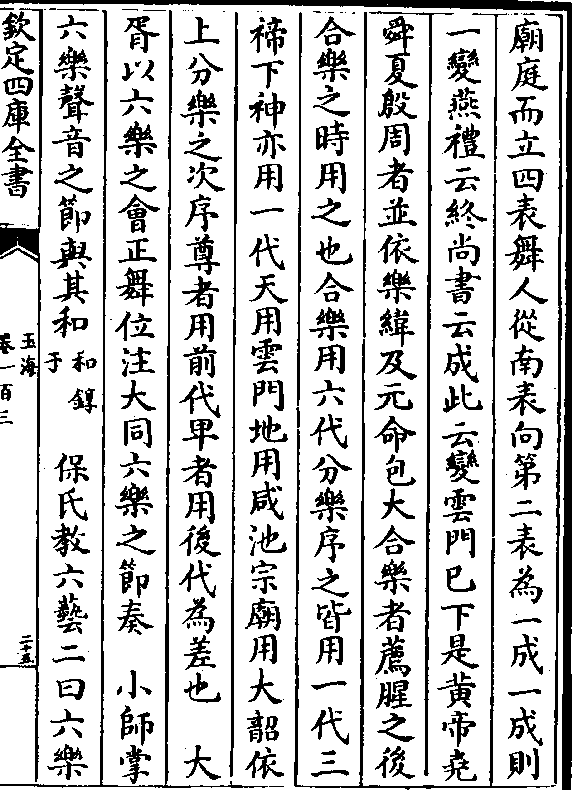 廟庭而立四表舞人從南表向第二表為一成一成則
一變燕禮云終尚書云成此云變雲門巳下是黄帝堯
舜夏殷周者並依樂緯及元命包大合樂者薦腥之後
合樂之時用之也合樂用六代分樂序之皆用一代三
禘下神亦用一代天用雲門地用咸池宗廟用大韶依
上分樂之次序尊者用前代卑者用後代為差也　大
胥以六樂之會正舞位注大同六樂之節奏　小師掌
六樂聲音之節與其和和錞于　保氏教六藝二曰六樂
欽定四庫全書
玉海
卷一百三
二十五